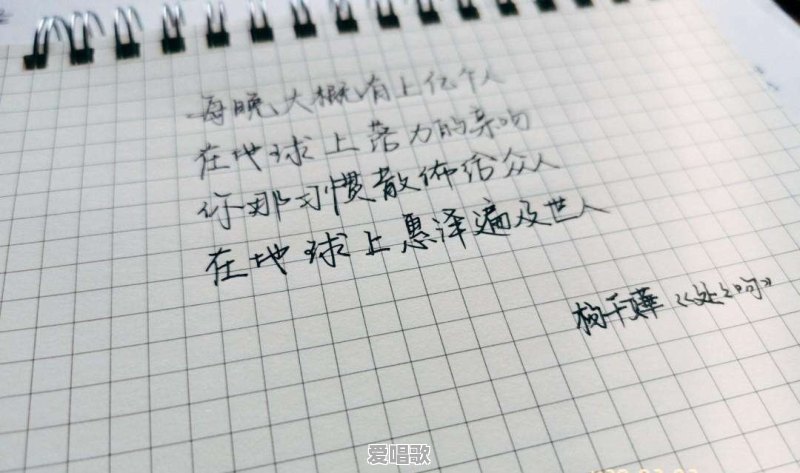 每晚大概有上亿个人
在地球上落力的亲吻
你那习惯散佈给众人
在地球上惠泽遍及世人
杨千嬅《处之吻》
爱唱歌